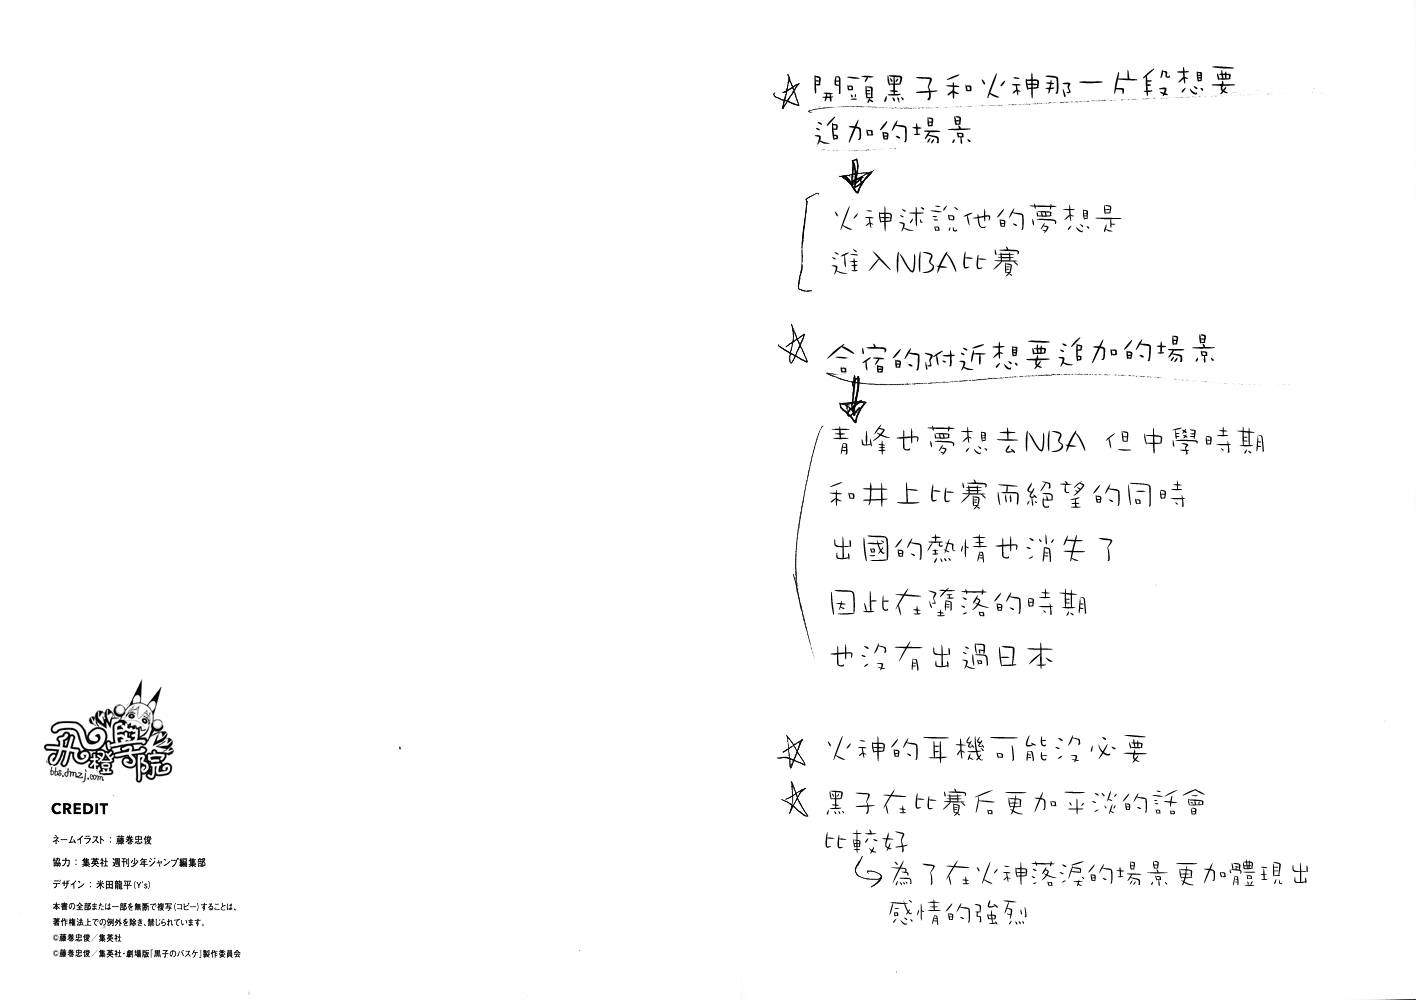 ☆ 開頭黑子和火神那一片段想要
追加的場景
火神述說他的夢想是
進入NBA比賽
☆ 合宿的附近想要追加的場景
青峰也夢想去NBA 但中學時期
和井上比賽而絕望的同時
出國的熱情也消失了
因此在墮落的時期
也沒有出過日本
☆ 火神的耳機可能沒必要
☆ 黑子在比賽后更加平淡的話會
比較好
為了在火神落淚的場景更加體現出
感情的強烈
飛橙學院
bbs.dmzj.com
CREDIT
ネームイラスト：藤巻忠俊
協力：集英社 週刊少年ジャンプ編集部
デザイン：米田龍平(Y's)
本書の全部または一部を無断で複写(コピー)することは、
著作権法上での例外を除き、禁じられています。
©藤巻忠俊／集英社
©藤巻忠俊／集英社・劇場版「黒子のバスケ」製作委員会